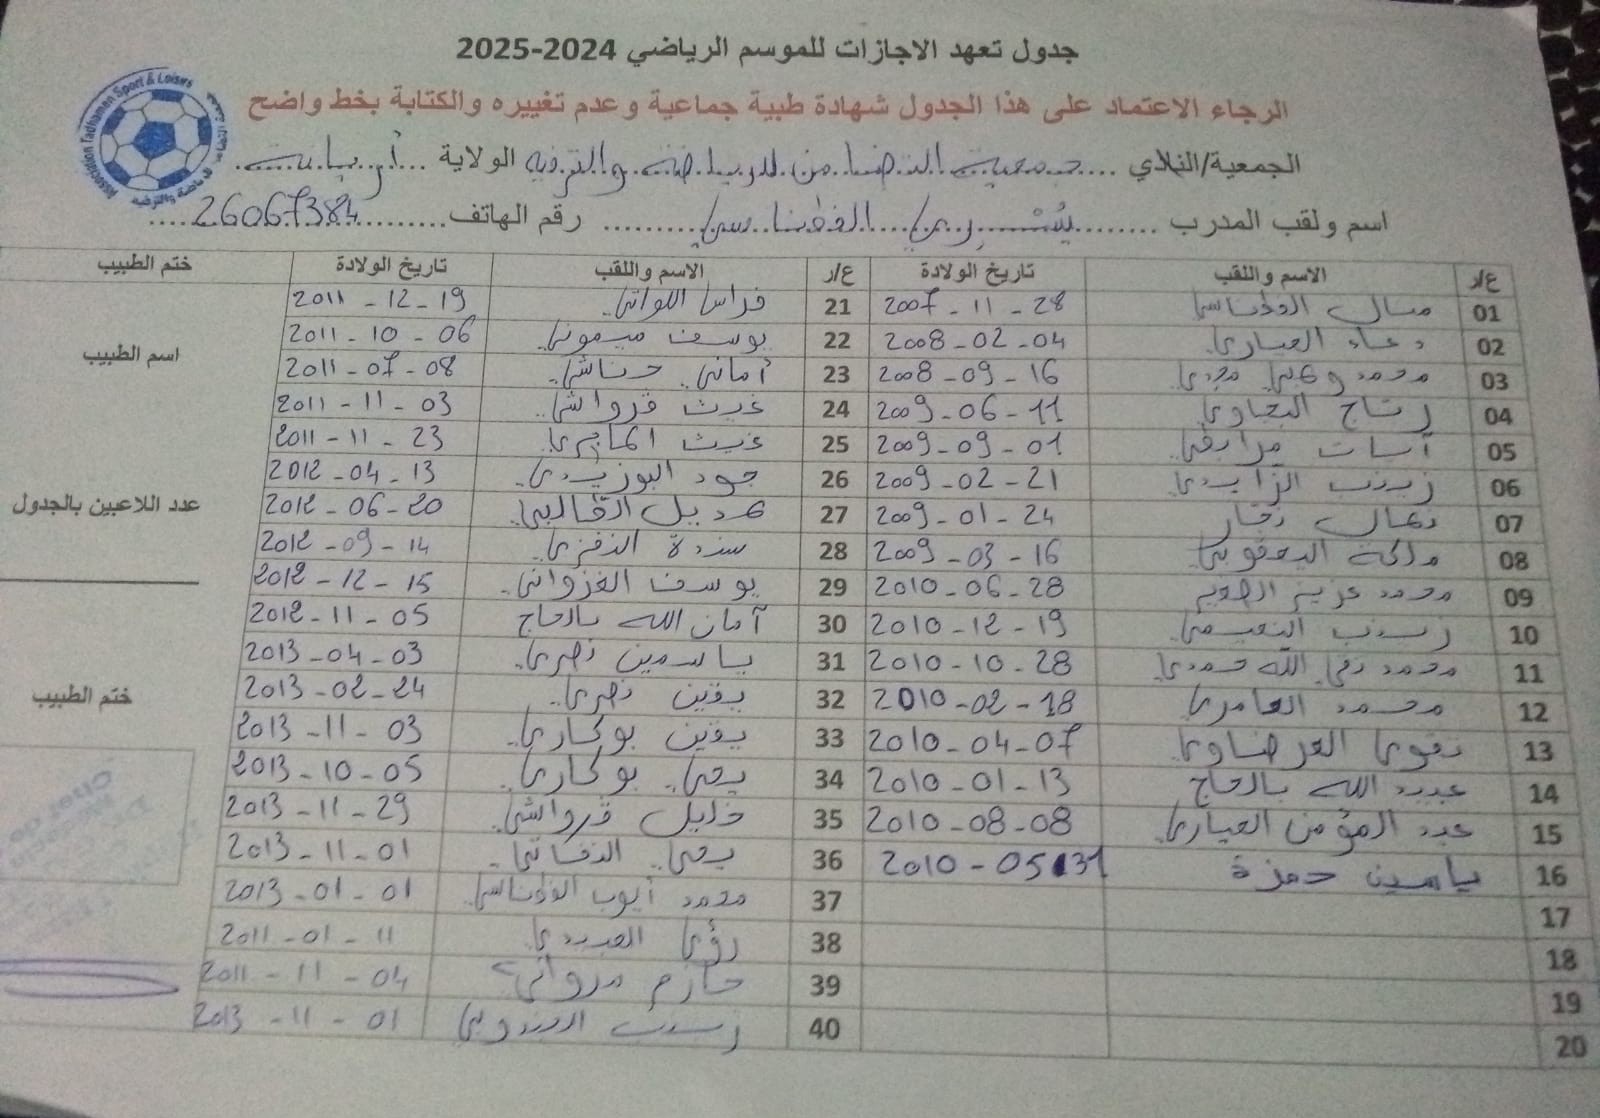 جدول تعهد الاجازات للموسم الرياضي 2024-2025
الرجاء الاعتماد على هذا الجدول شهادة طبية جماعية وعدم تغييره والكتابة بخط واضح
Association Tadhamen Sport & Loisirs
الجمعية/النادي ....جمعية التضامن للرياضة والترفيه الولاية ...أريانة
اسم ولقب المدرب ........يسري الفطناسي.......... رقم الهاتف.........26067384....
ع/ر الاسم واللقب تاريخ الولادة ع/ر الاسم واللقب تاريخ الولادة ختم الطبيب
01 منال الفطناسي 2007 - 11 - 28 21 فراس اللواتي 2011 - 12 - 19
02 دعاء العياري 2008 - 02 - 04 22 يوسف ميموني 2011 - 10 - 06
اسم الطبيب
03 محمد وهبي مجدي 2008 - 09 - 16 23 أماني حناشي 2011 - 07 - 08
04 رتاج البجاوي 2009 - 06 - 11 24 غيث قرواشي 2011 - 11 - 03
05 آيات مرابطي 2009 - 09 - 01 25 غيث الماجري 2011 - 11 - 23
06 زينب الزايدي 2009 - 02 - 21 26 جود البوزيدي 2012 - 04 - 13
عدد اللاعبين بالجدول
07 نهال 2009 - 01 - 24 27 هديل الطالبي 2012 - 06 - 20
08 ملكة اليعقوبي 2009 - 03 - 16 28 سندة النفزي 2012 - 09 - 14
09 محمد عزيز 2010 - 06 - 28 29 يوسف الغزواني 2012 - 12 - 15
10 زينب النعيمي 2010 - 12 - 19 30 أمان الله بالحاج 2012 - 11 - 05
11 محمد تقي الله حمدي 2010 - 10 - 28 31 ياسمين نصري 2013 - 04 - 03
ختم الطبيب
12 محمد العامري 2010 - 02 - 18 32 يقين نصري 2013 - 02 - 24
13 تقوى العرضاوي 2010 - 04 - 07 33 يقين بوكاري 2013 - 11 - 03
14 عبد الله بالحاج 2010 - 01 - 13 34 يحي بوكاري 2013 - 10 - 05
15 عبد المؤمن العياري 2010 - 08 - 08 35 خليل قرواشي 2013 - 11 - 29
16 ياسين حمزة 2010 - 05 31 36 يحي 2013 - 11 - 01
17 37 محمد أيوب الفطناسي 2013 - 01 - 01
18 38 رؤى العبيدي 2011 - 01 - 11
19 39 حازم مرواني 2011 - 11 - 04
20 40 زينب 2013 - 11 - 01